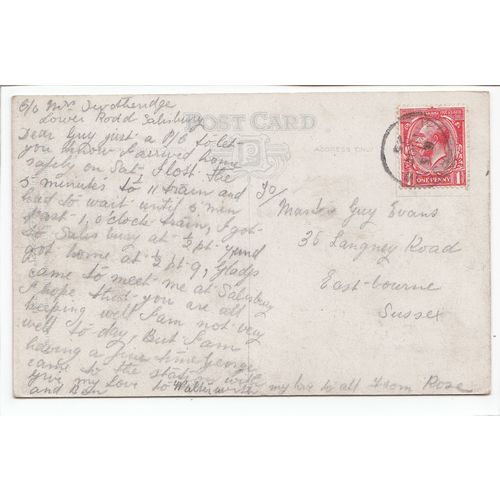 c/o Mrs
Lower Rodd Salisbury
Dear Guy just a P/C to let
you know I arrived home
safely on Sat, I lost the
5 minutes to 11 train and
had to wait until 5 min
past 1, o,clock train, I got
to Salisbury at ½ pt 7, and
got home at ½ pt 9, Gladys
came to meet me at Salisbury
I hope that you are all
keeping well I am not very
well to day, But I am
having a fine time George
came to the station with
give my love to Walter with my love to all from Rose
and Ben
POST CARD
ADDRESS ONLY
To/
Master Guy Evans
35 Langney Road
East-bourne
Sussex
ONE PENNY
1